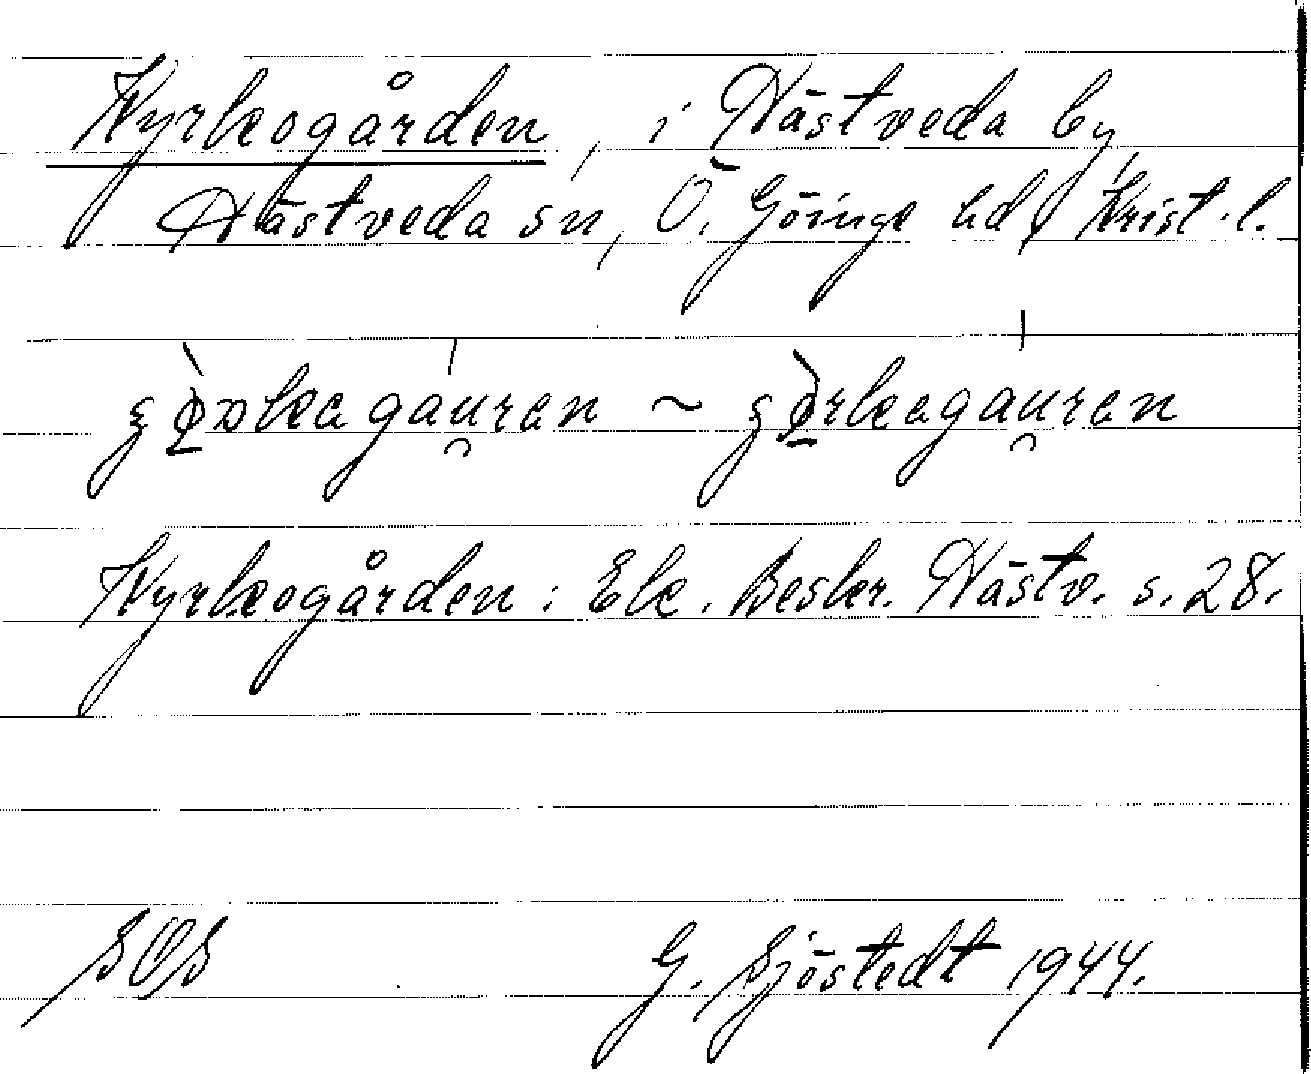 Kyrkogården, i Hästveda by,
Hästveda sn, Ö. Göinge hd, Krist. l.
Kyrkogården: Ek. Beskr. Hästv. s. 28.
SOS G. Sjöstedt 1944.